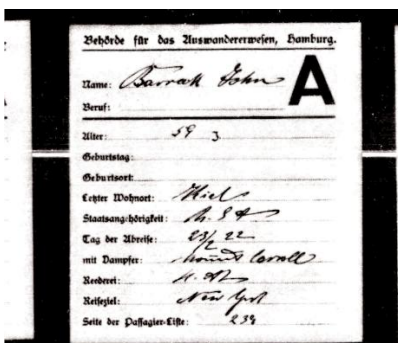 Behörde für das Auswandererwesen, Hamburg.
A
Name: Barrack John
Beruf:
Alter: 59 J.
Geburtstag:
Geburtsort:
Letzter Wohnort: Kiel
Staatsangehörigkeit: U. S. A
Tag der Abreise: 23/2 22
mit Dampfer: Mount Carroll
Reederei:
Reiseziel: New York
Seite der Passagier-Liste: 239